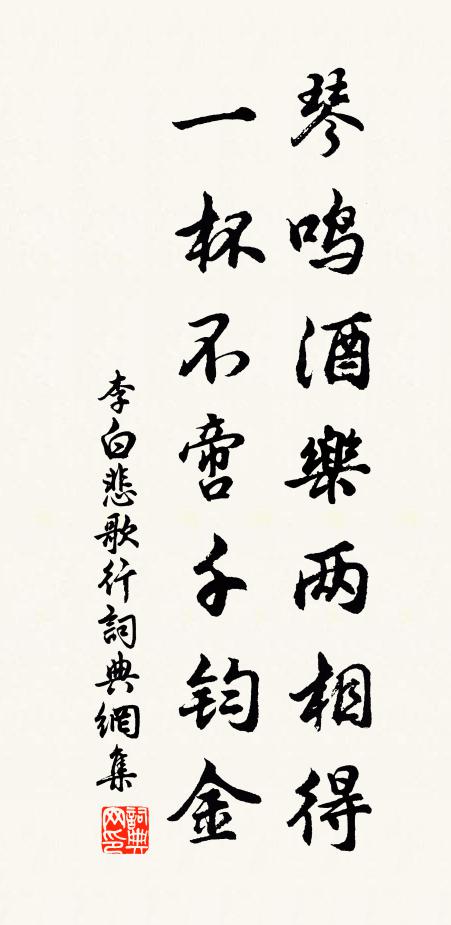 琴鸣酒樂两相得
一杯不啻千钧金
李白悲歌行詞典網集
詞典网印